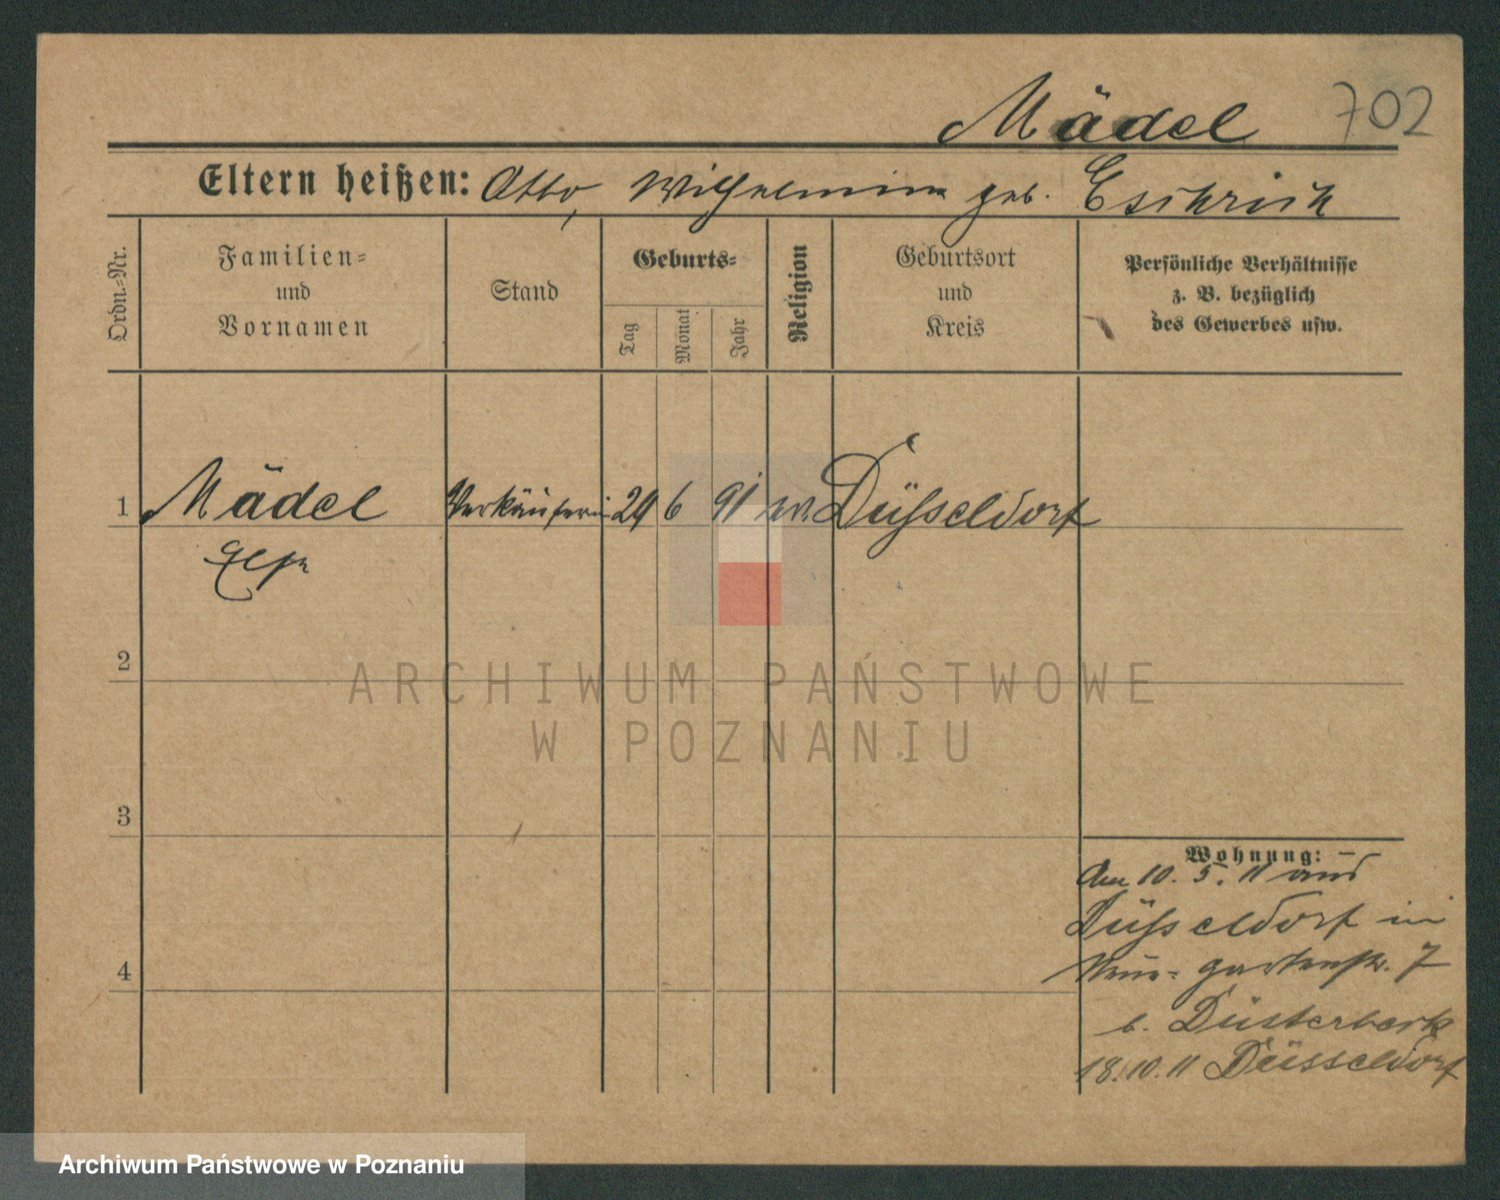 Mädel 702
Eltern heißen: Otto, Wilhelmine geb. Eschrich
Ordn.=Nr.
Familien=
und
Vornamen
Stand
Geburts=
Tag
Monat
Jahr
Religion
Geburtsort
und
Kreis
Persönliche Verhältnisse
z. B. bezüglich
des Gewerbes usw.
1 Mädel Verkäuferin 24 6 91 ev. Düsseldorf
Else
2
ARCHIWUM PAŃSTWOWE
W POZNANIU
3
Wohnung:
Am 10. 5. 11 aus
Düsseldorf in
gartenstr. 7
4
b. Düsterbeck
18.10.11 Düsseldorf
Archiwum Państwowe w Poznaniu